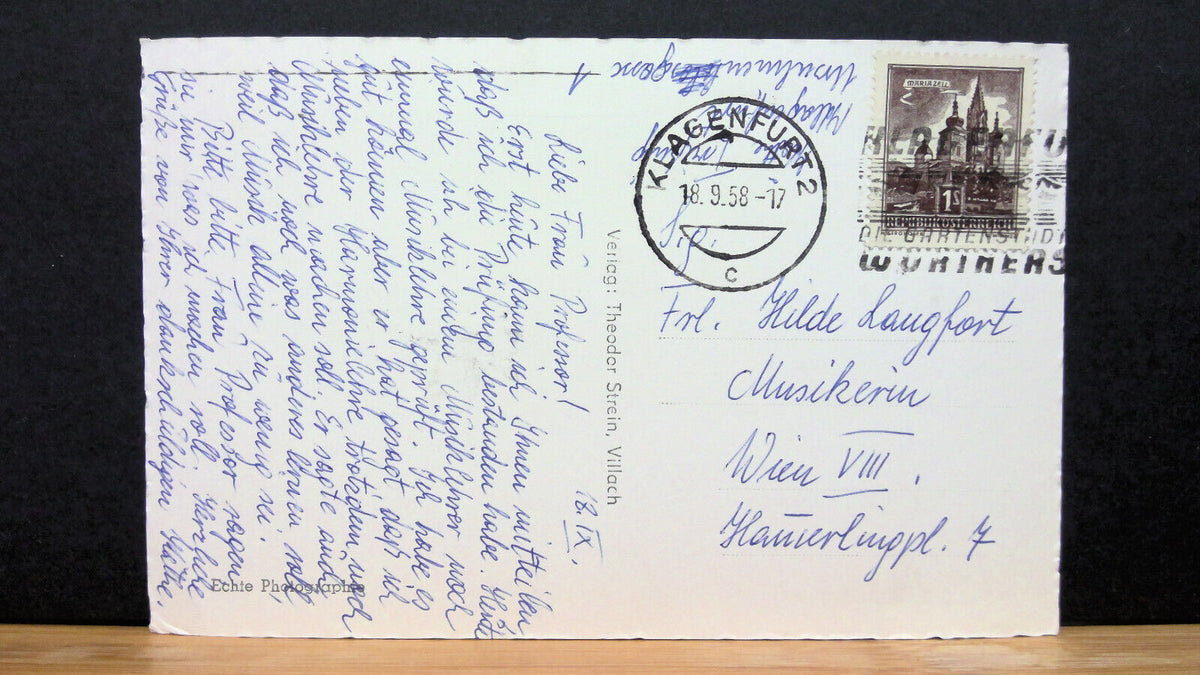 18. IX.
Liebe Frau Professor!
Erst heute kann ich Ihnen mitteilen
daß ich die Prüfung bestanden habe. Heute
wurde ich bei einem Musiklehrer noch
einmal Musiklehre geprüft. Ich habe es
gut können aber er hat gesagt daß ich
neben der Harmonielehre trotzdem noch
Musiklehre machen soll. Er sagte auch
daß ich noch was anderes lernen soll,
weil Musik allein zu wenig sei.
Bitte, bitte, Frau Professor sagen
sie mir was ich machen soll. Herzliche
Grüße von Ihrer dankschuldigen
Echte Photographie
Verlag: Theodor Strein, Villach
Klagenfurt
Ursulinengasse
KLAGENFURT 2
18. 9. 58 - 17
c
MARIAZELL
1S
REPUBLIK ÖSTERREICH
KLAGENFU
DIE GARTENSTADT
WÖRTHERS
Frl. Hilde Langfort
Musikerin
Wien VIII.
Hamerlingpl. 7